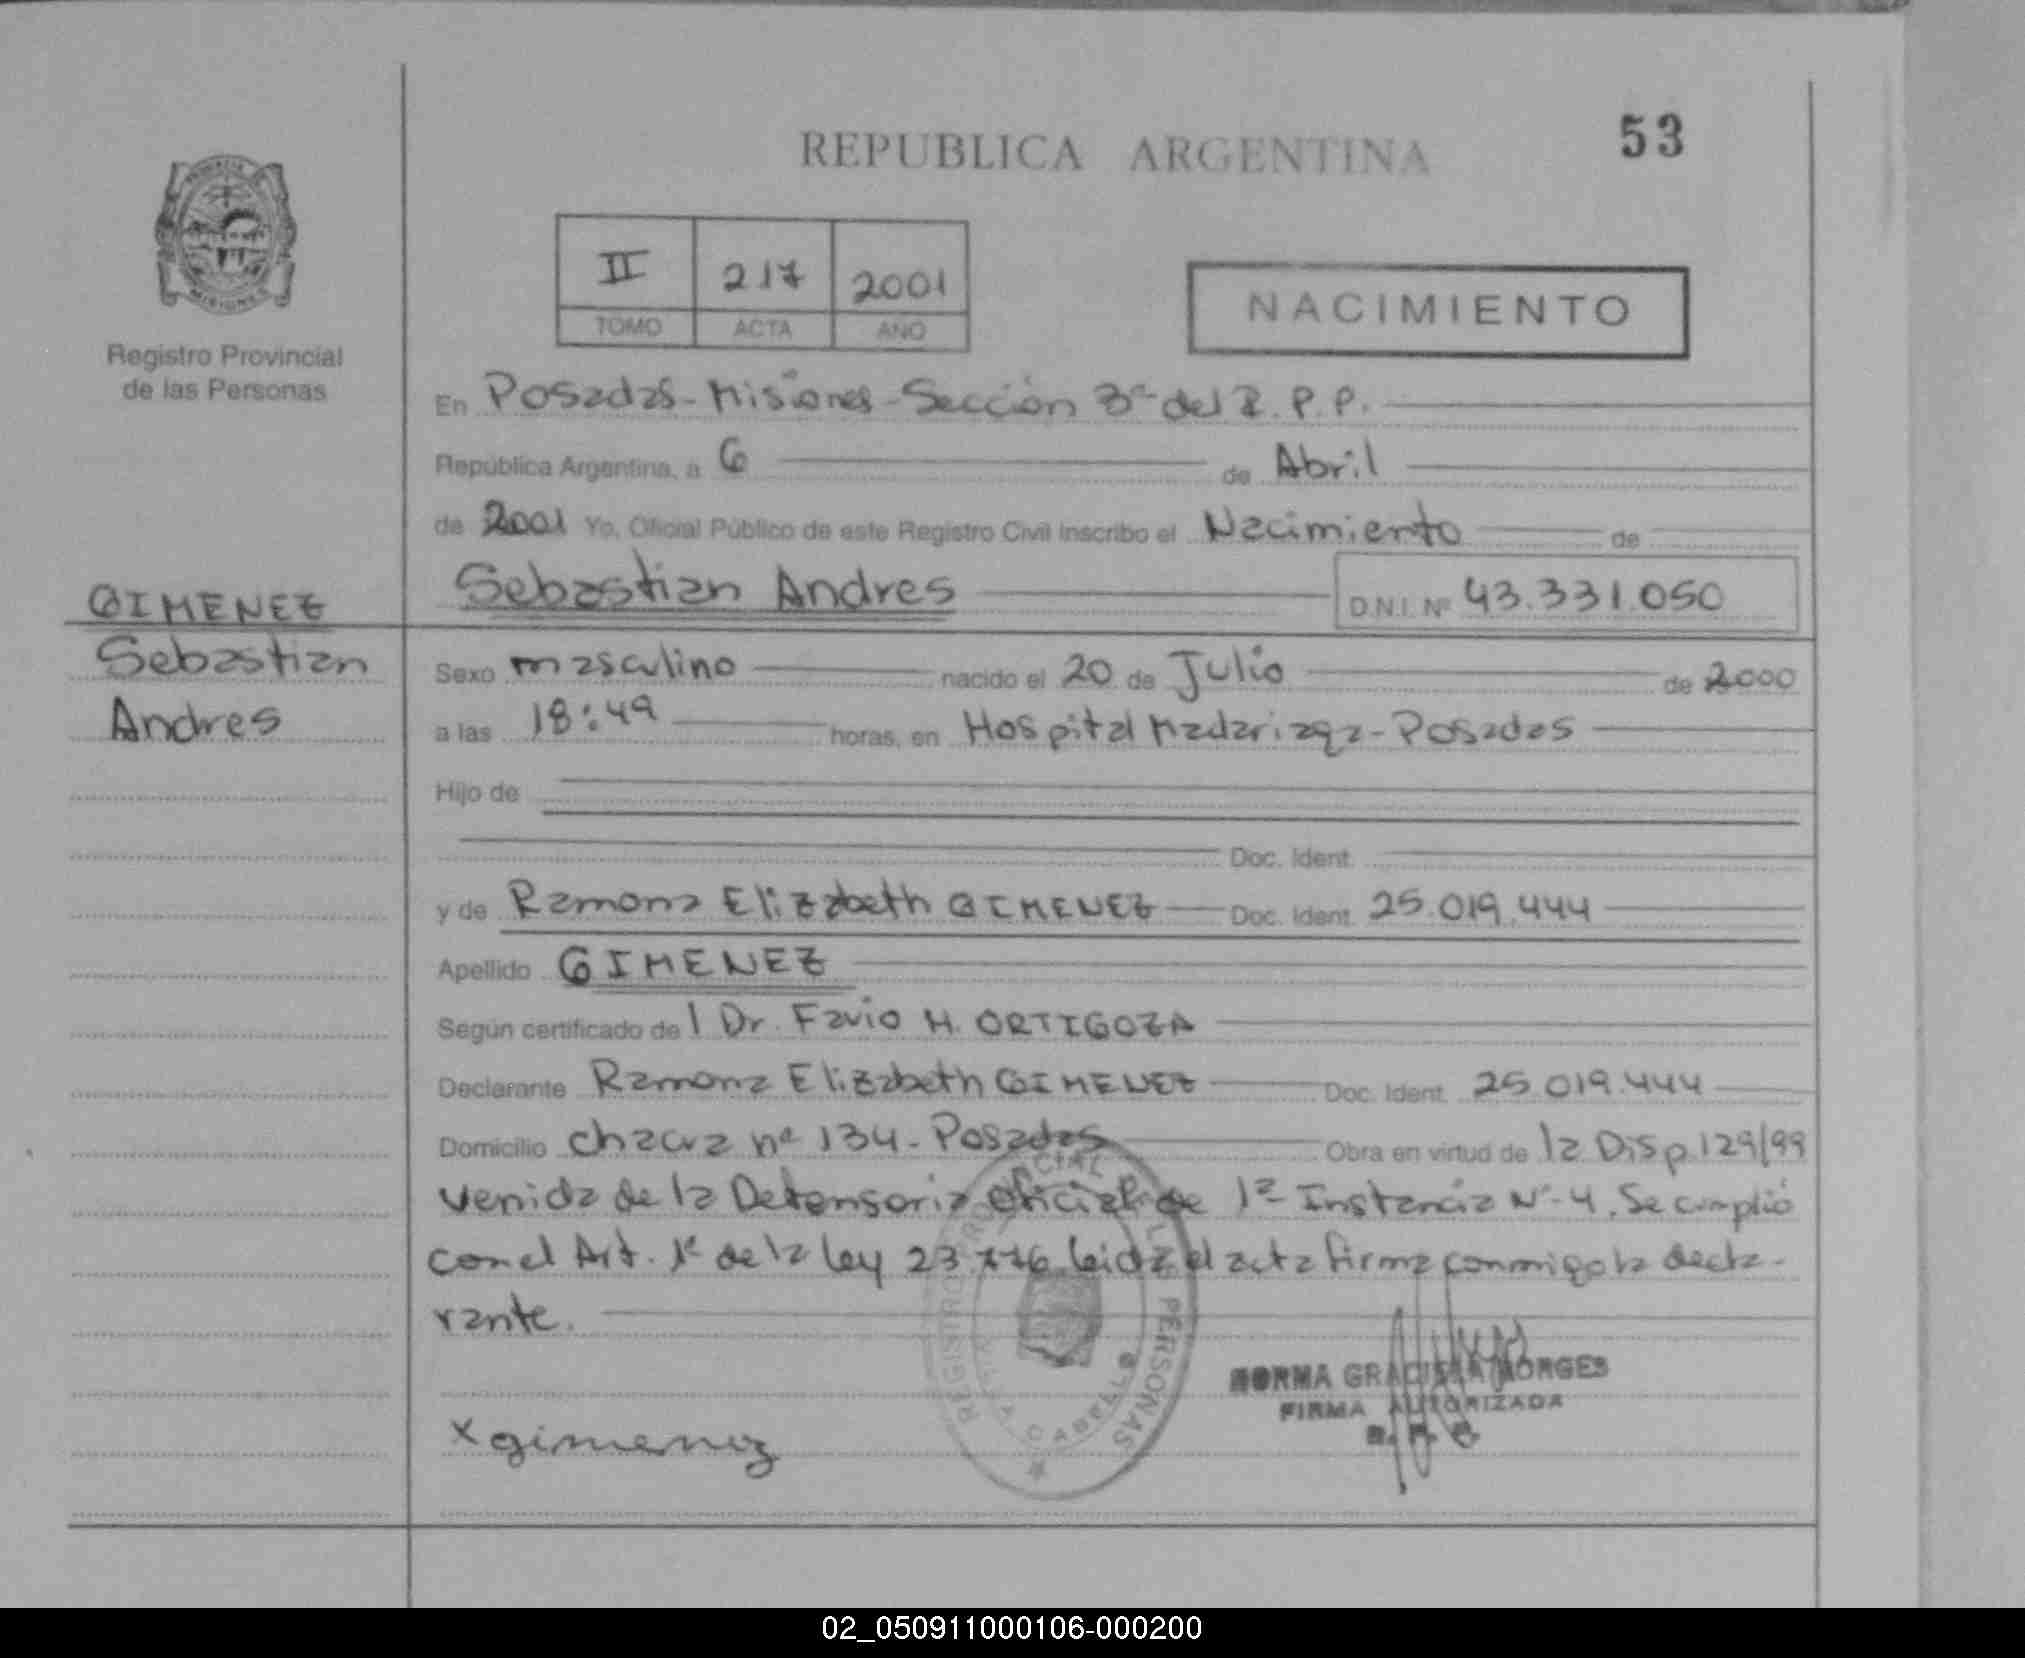 53
REPUBLICA ARGENTINA
II 217 2001
TOMO ACTA AÑO
NACIMIENTO
Registro Provincial
de las Personas
MISIONES
En Posadas-Misiones-Sección 3ª del R.P.P.
República Argentina, a 6 de Abril
de 2001 Yo, Oficial Público de este Registro Civil inscribo el Nacimiento de
Sebastian Andres D.N.I. Nº 43.331.050
GIMENEZ
Sebastian
Andres
Sexo masculino nacido el 20 de Julio de 2000
a las 18:49 horas, en Hospital Madariaga-Posadas
Hijo de
Doc. Ident.
y de Ramona Elizabeth GIMENEZ Doc. Ident. 25.019.444
Apellido GIMENEZ
Según certificado de l Dr. Favio H. ORTIGOZA
Declarante Ramona Elizabeth GIMENEZ Doc. Ident. 25.019.444
Domicilio chacra nº 134-Posadas Obra en virtud de la Disp. 129/99
venida de la Defensoria oficial de 1ª Instancia Nº-4. Se cumplió
con el Art. 1º de la ley 23.776 leida el acta firma conmigo la decla-
rante.
REGISTRO PROVINCIAL DE LAS PERSONAS
VILLA CABELLO
NORMA GRACIELA BORGES
FIRMA AUTORIZADA
x gimenez
02_050911000106-000200